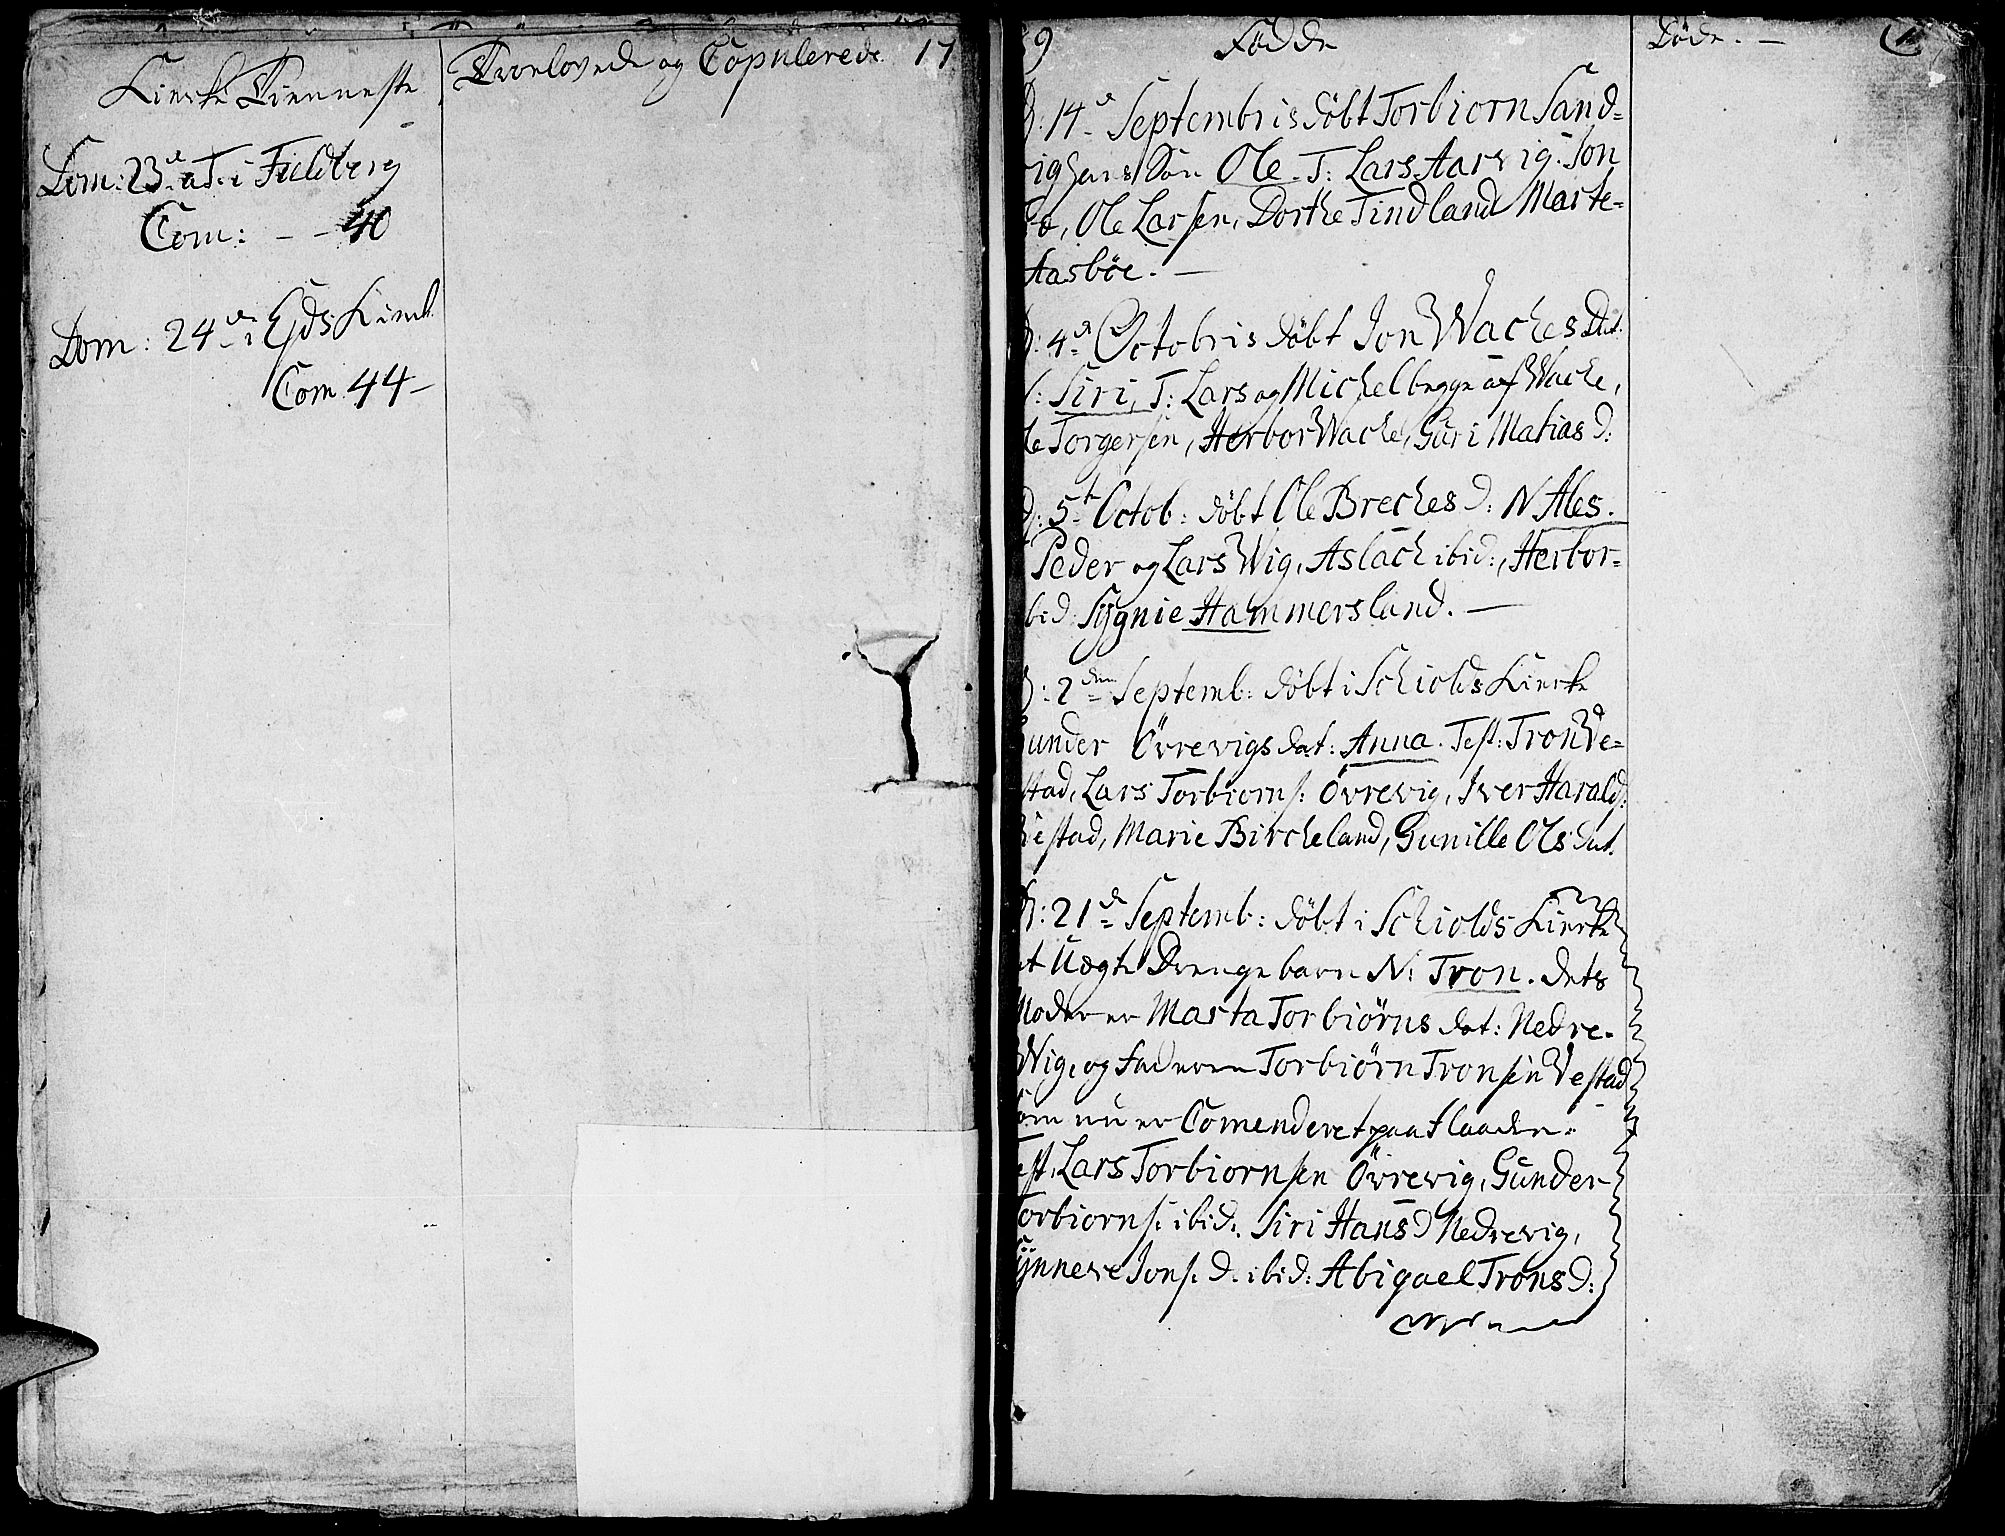 Kircke Tienneste
Dom: 23de a T. i Fieldberg
Com: - - 40
Dom: 24de i Eids Kirck
Com 44 -
Trovlovede og Copulerede. 17
9 Fødde
D: 14de Septembris döbt Torbiorn Sand=
vighans Sön Ole. T: Lars Aarvig. Jon
Ole Larsen, Dorthe Tindland Marte=
Aasböe. -
D: 4de Octobris döbt Jon Waches Dat.
N: Siri, T: Lars og Michel begge af Wache,
Ole Torgersen, Herbor Wache, Guri Matias d:
D: 5te Octob: döbt Ole Breches d: N. Ales.
Peder og Lars Wig, Aslach ibid:, Herbor=
ibid: Sygnie Hammersland. -
D: 2den Septemb: döbt i Schiolds Kircke
Gunder Övrevigs dat: Anna. Test: Tron Ve=
stad, Lars Torbiorns: Övrevig, Iver Harald:
Vestad, Marie Bircheland, Gunille Ols dat.
D: 21de Septemb: döbt i Schiolds Kircke
et Uægte Drenge barn N: Tron. dets
Moder er Marta Torbiörns dat: Nedre=
Wig, og Faderen Torbiörn Tronsen Vestad
som nu er Comenderet paa Flaaden.
Test, Lars Torbiornsen Övrevig, Gunder
Torbiorns: ibid: Siri Hans D Nedrevig,
Synneve Jons: D: ibid: Abigael Trons D:
Döde. -